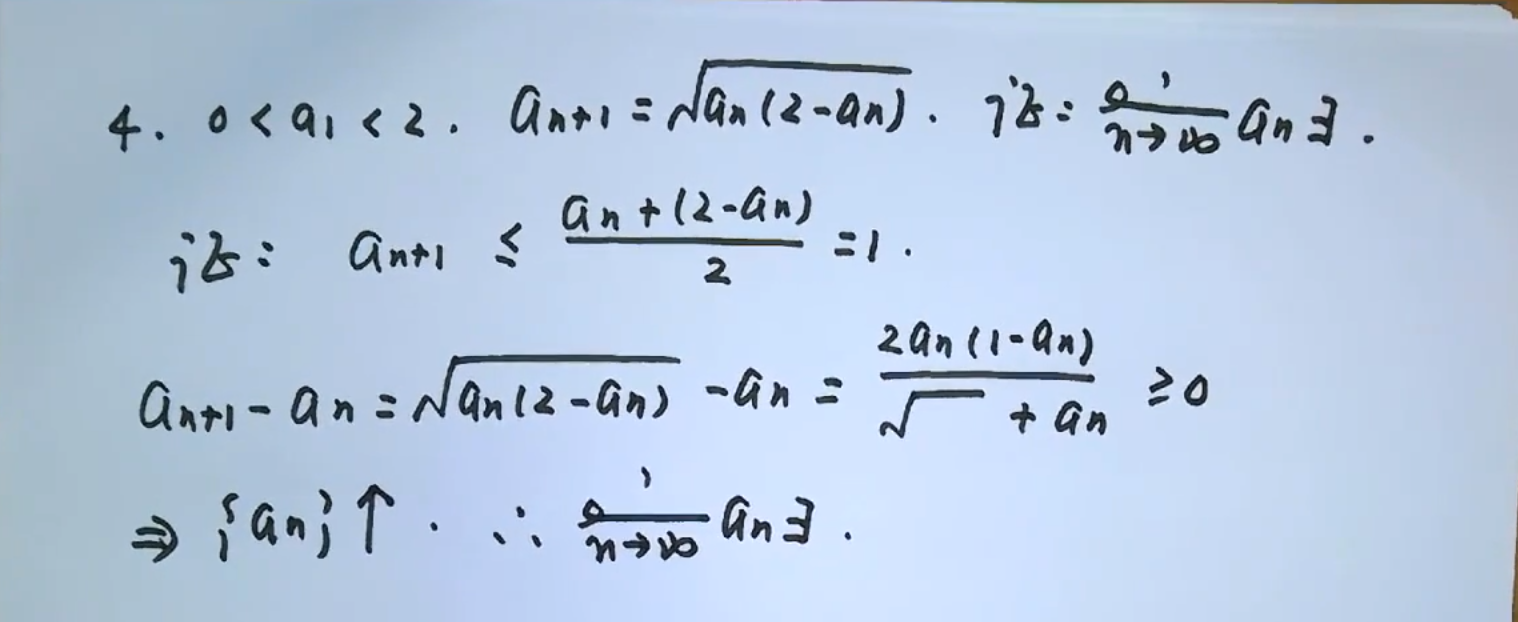 4. 0 < a₁ < 2. aₙ₊₁ = √(aₙ(2-aₙ)). 证: lim n→∞ aₙ∃.
证: aₙ₊₁ ≤ (aₙ+(2-aₙ))/2 = 1.
aₙ₊₁ - aₙ = √(aₙ(2-aₙ)) - aₙ = 2aₙ(1-aₙ)/(√ + aₙ) ≥ 0
⇒ {aₙ}↑. ∴ lim n→∞ aₙ∃.